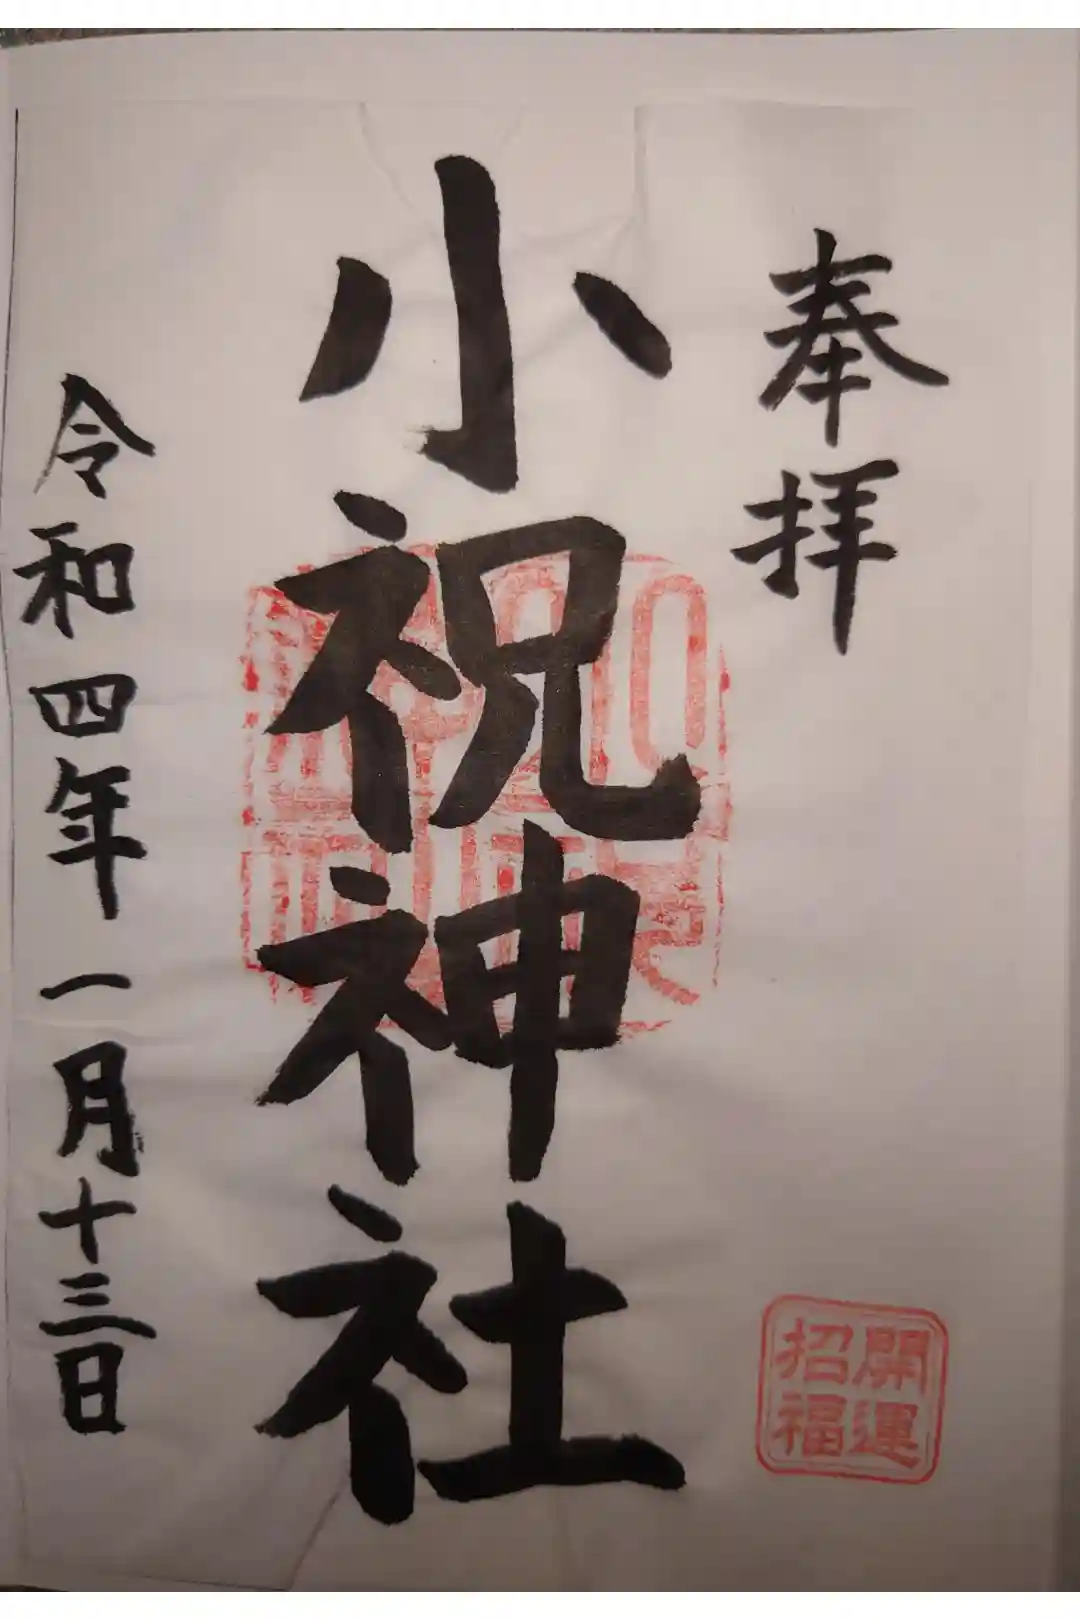 奉拝
開運
招福
小祝神社
令和四年一月十三日